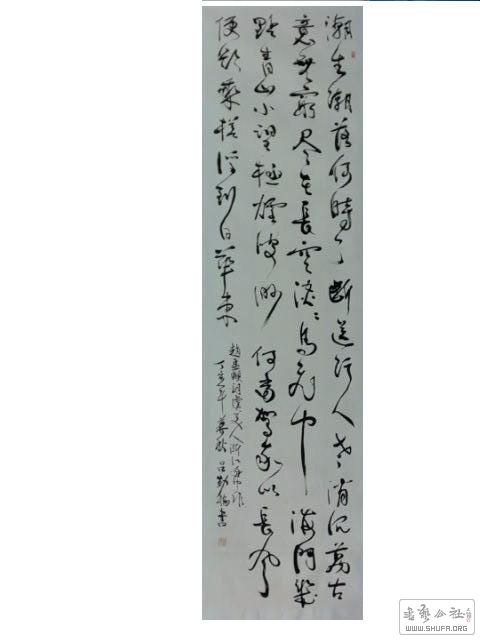 潮生潮落何時了斷送行人老消沉萬古
意無窮尽在長空澹澹鳥飛中 海門幾
點青山小望極煙波渺 何當駕我以長風
便欲乘桴浮到日華東
趙孟頫詞虞美人浙江舟中作
丁亥年暮秋呂書
公社
WWW.SHUFA.ORG